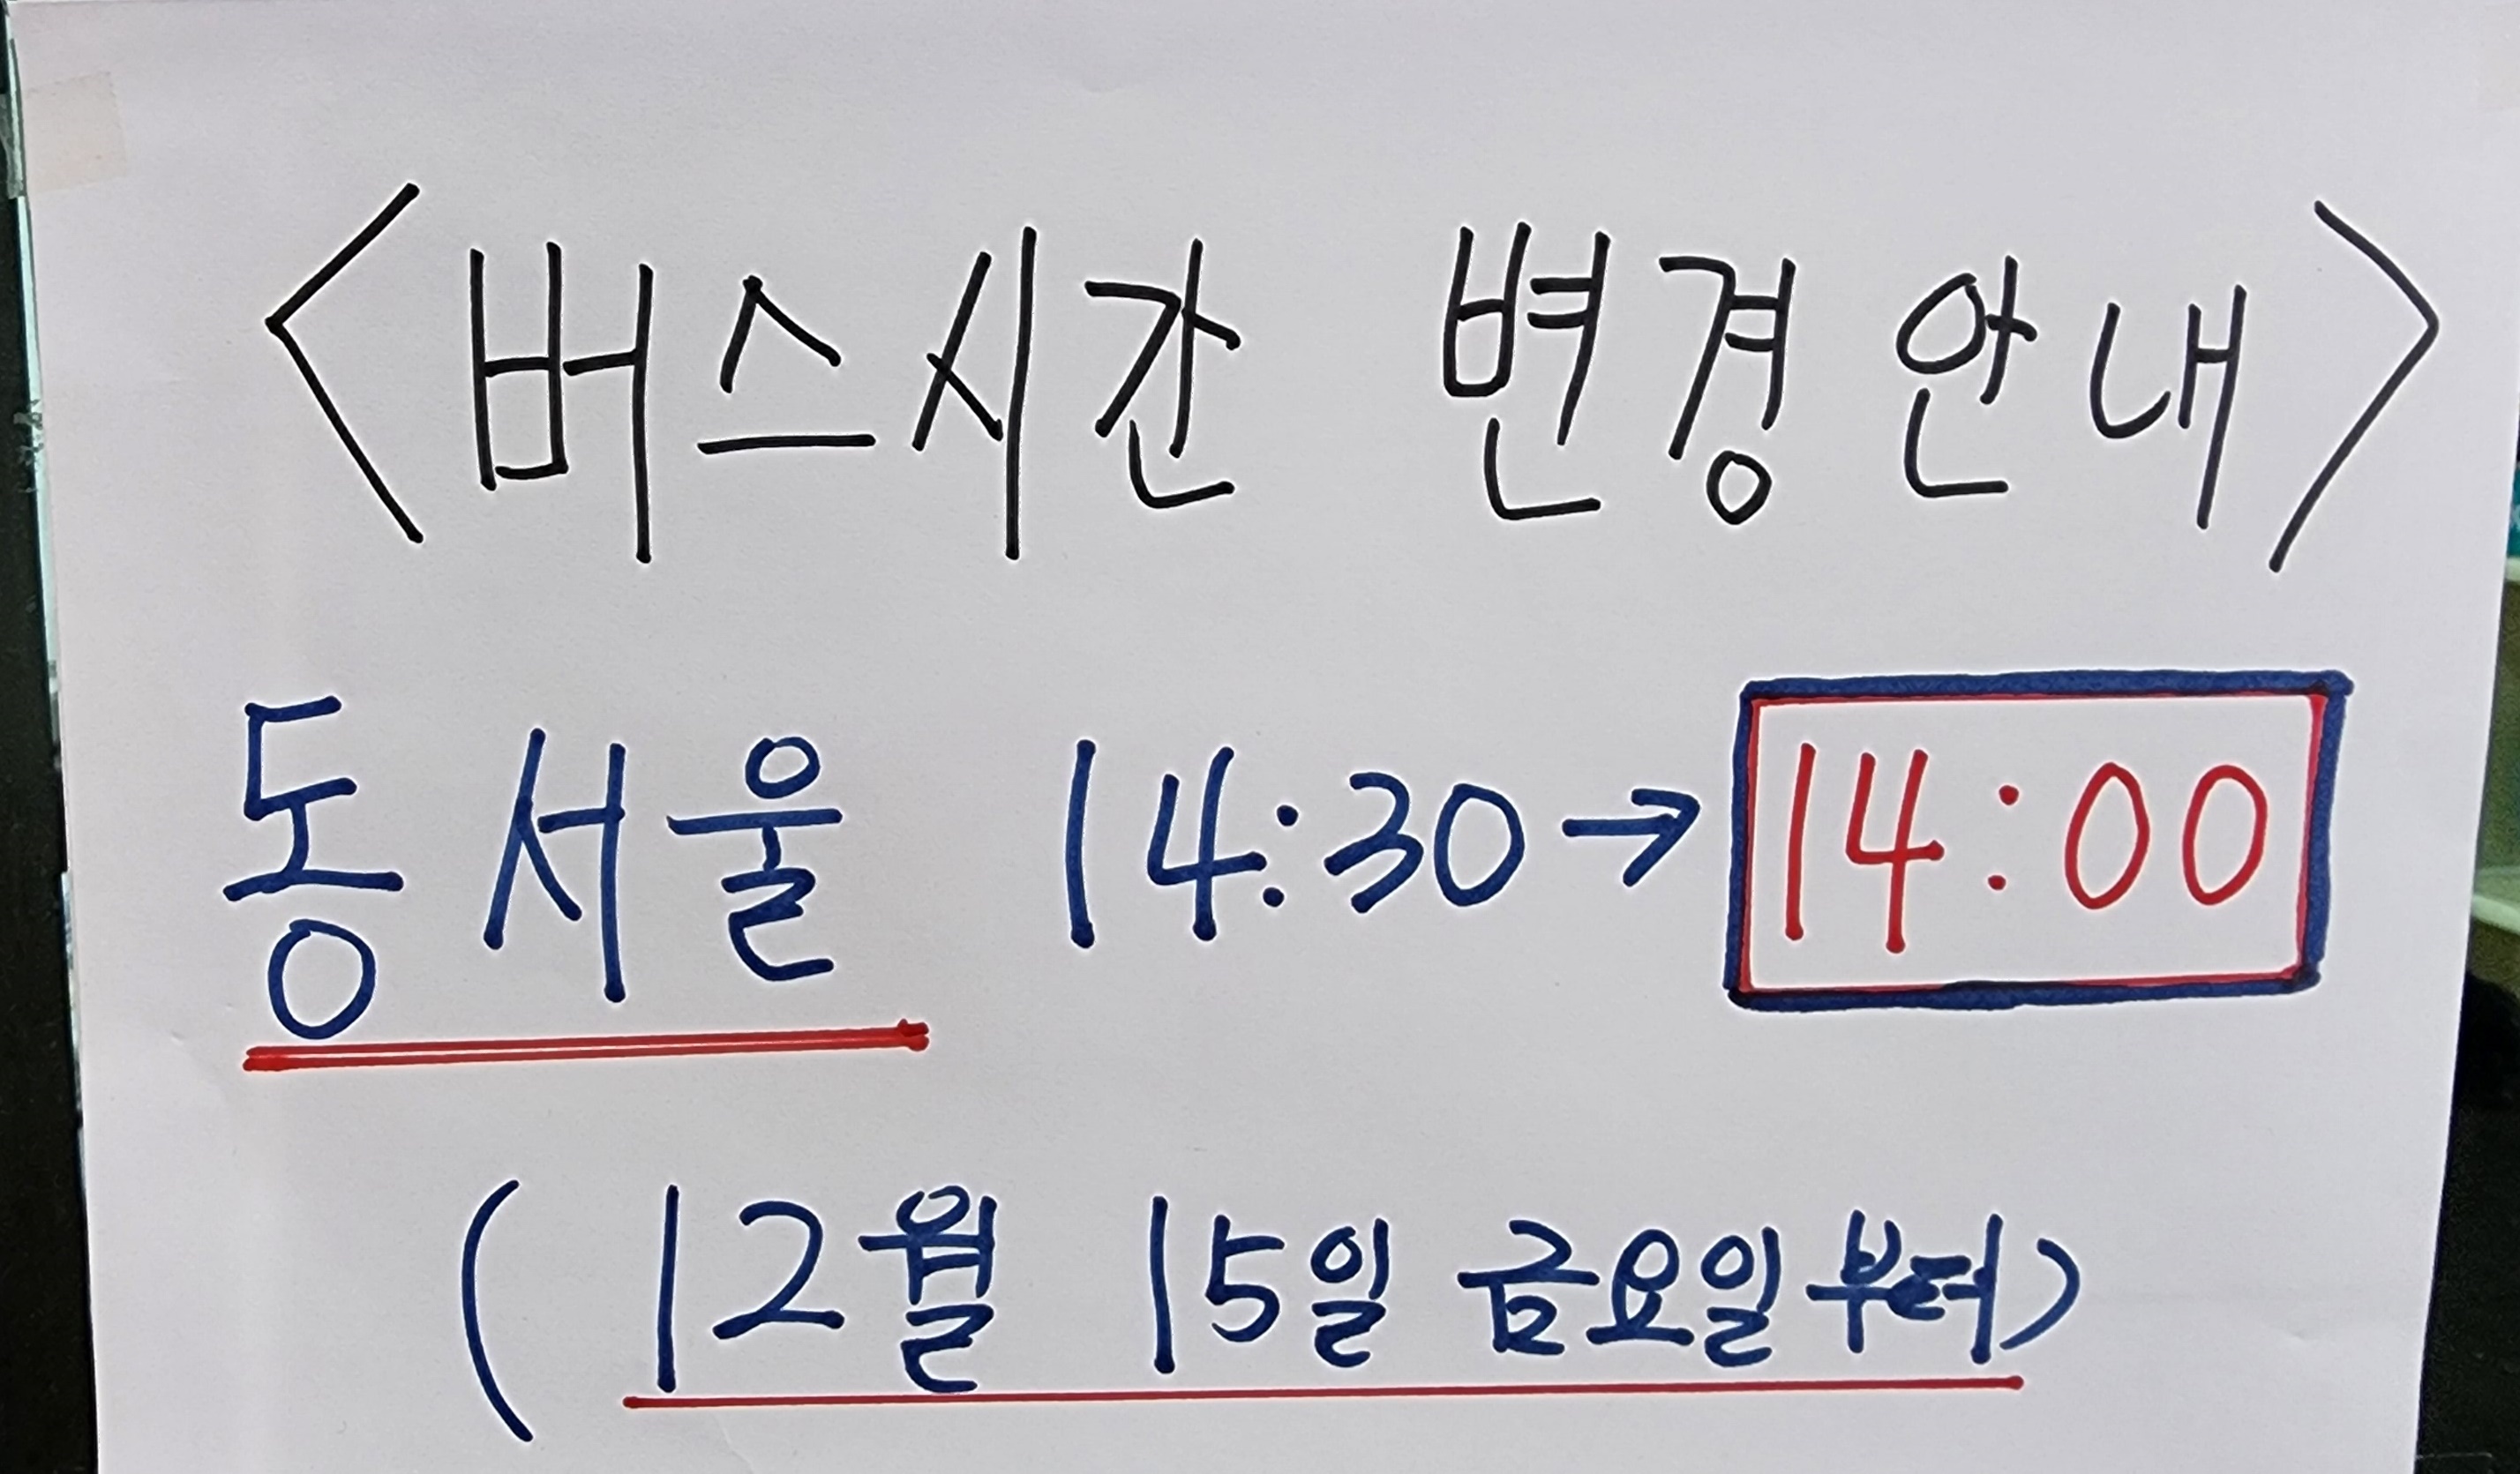 <버스시간 변경 안내>
동서울 14:30→14:00
(12월 15일 금요일부터)